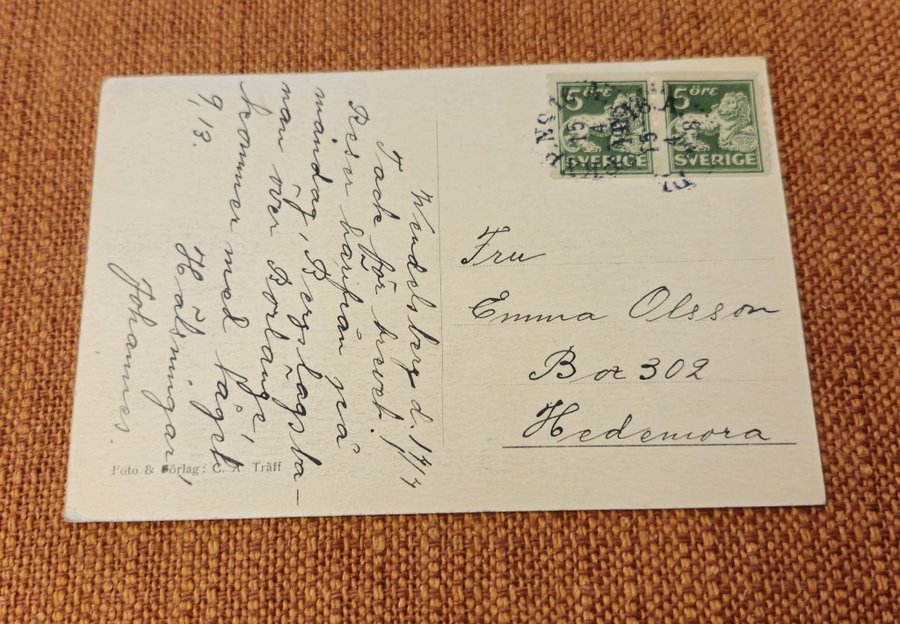 Wendelsberg d. 14/4
Tack för brevet!
Reser härifrån på
måndag, Bergslagsba-
nan över Borlänge,
kommer med tåget
9,13.
Hälsningar,
Johannes.
Foto & Förlag: C. A. Träff
5 ÖRE
SVERIGE
5 ÖRE
SVERIGE
Fru
Emma Olsson
Box 302
Hedemora